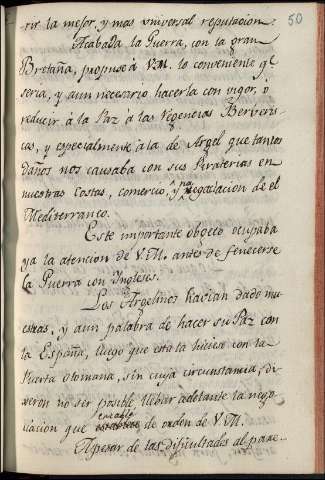 50
rir la mejor, y mas universal reputacion.
Acabada la Guerra, con la gran
Bretaña, propuse à V.M. lo conveniente qe
seria, y aun necesario hacerla con vigor, ò
reducir à la Paz à las regencias Berveris-
cas, y especialmente à la de Argel que tantos
daños nos causaba con sus Piraterias en
nuestras Costas, comercio, y navegacion de el
Mediterraneo.
Este importante obgeto ocupaba
ya la atencion de V.M. antes de fenecerse
la Guerra con Ingleses.
Los Argelinos havian dado mu-
estras, y aun palabra de hacer su Paz con
la España, luego que esta la hiciese con la
Puerta Otomana, sin cuya circunstancia, di-
xeron no ser posible llebar adelante la nego-
ciacion que entablé de orden de V.M.
Apesar de las dificultades al pare-